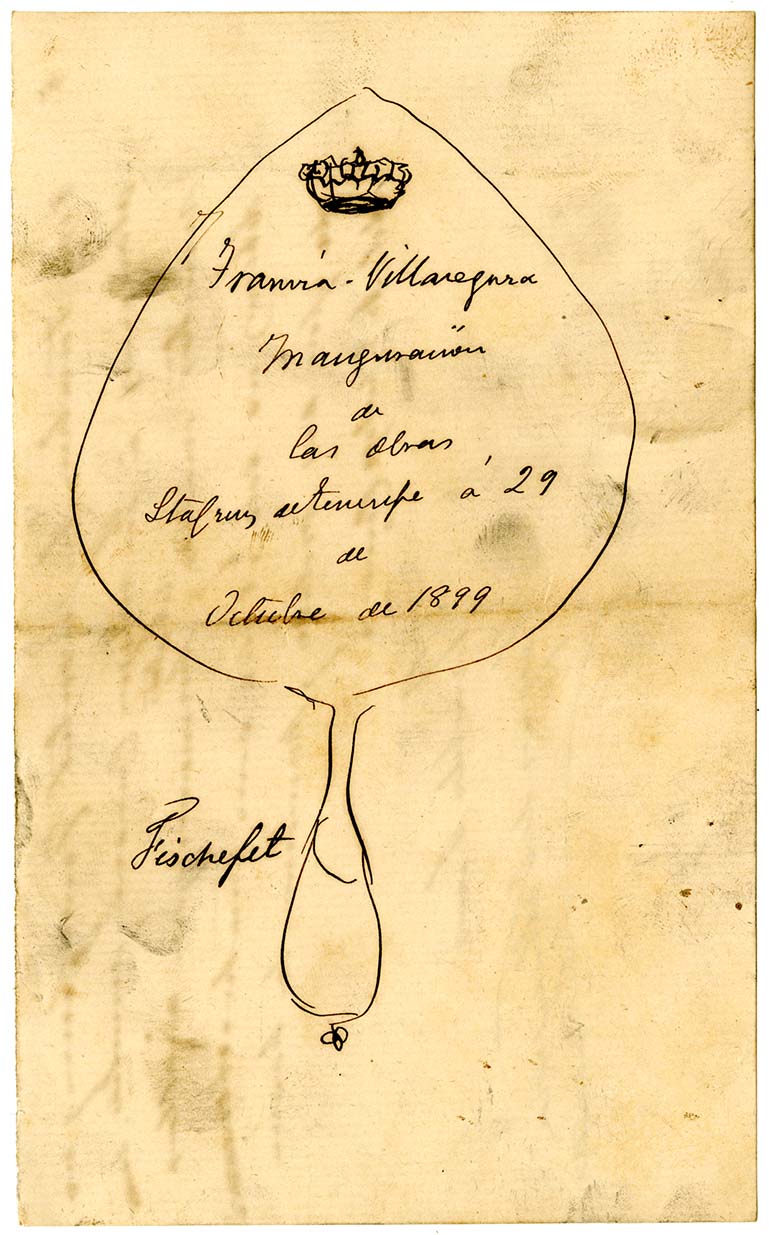 Tranvía - Villasegura
Inauguración
de
las obras
Sta Cruz de Tenerife á 29
de
Octubre de 1899
Fischefet